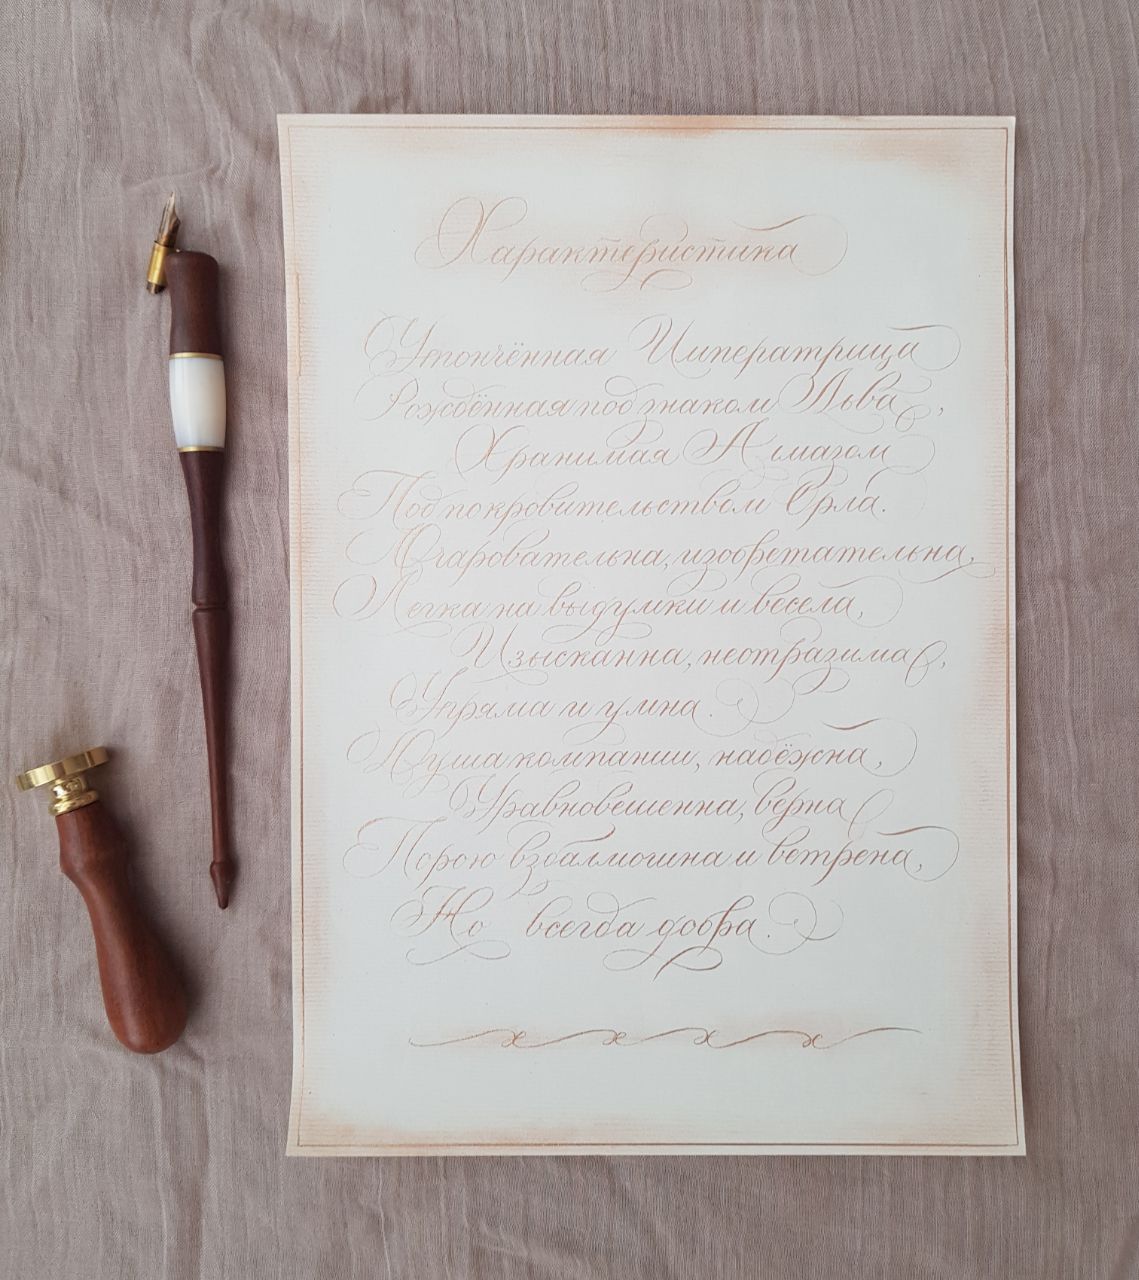 Характеристика
Утончённая Императрица
Рождённая под знаком Льва,
Хранимая Алмазом
Под покровительством Орла.
Очаровательна, изобретательна,
Легка на выдумки и весела,
Изысканна, неотразима,
Упряма и умна.
Душа компании, надёжна,
Уравновешенна, верна
Порою взбалмошна и ветрена,
Но всегда добра.